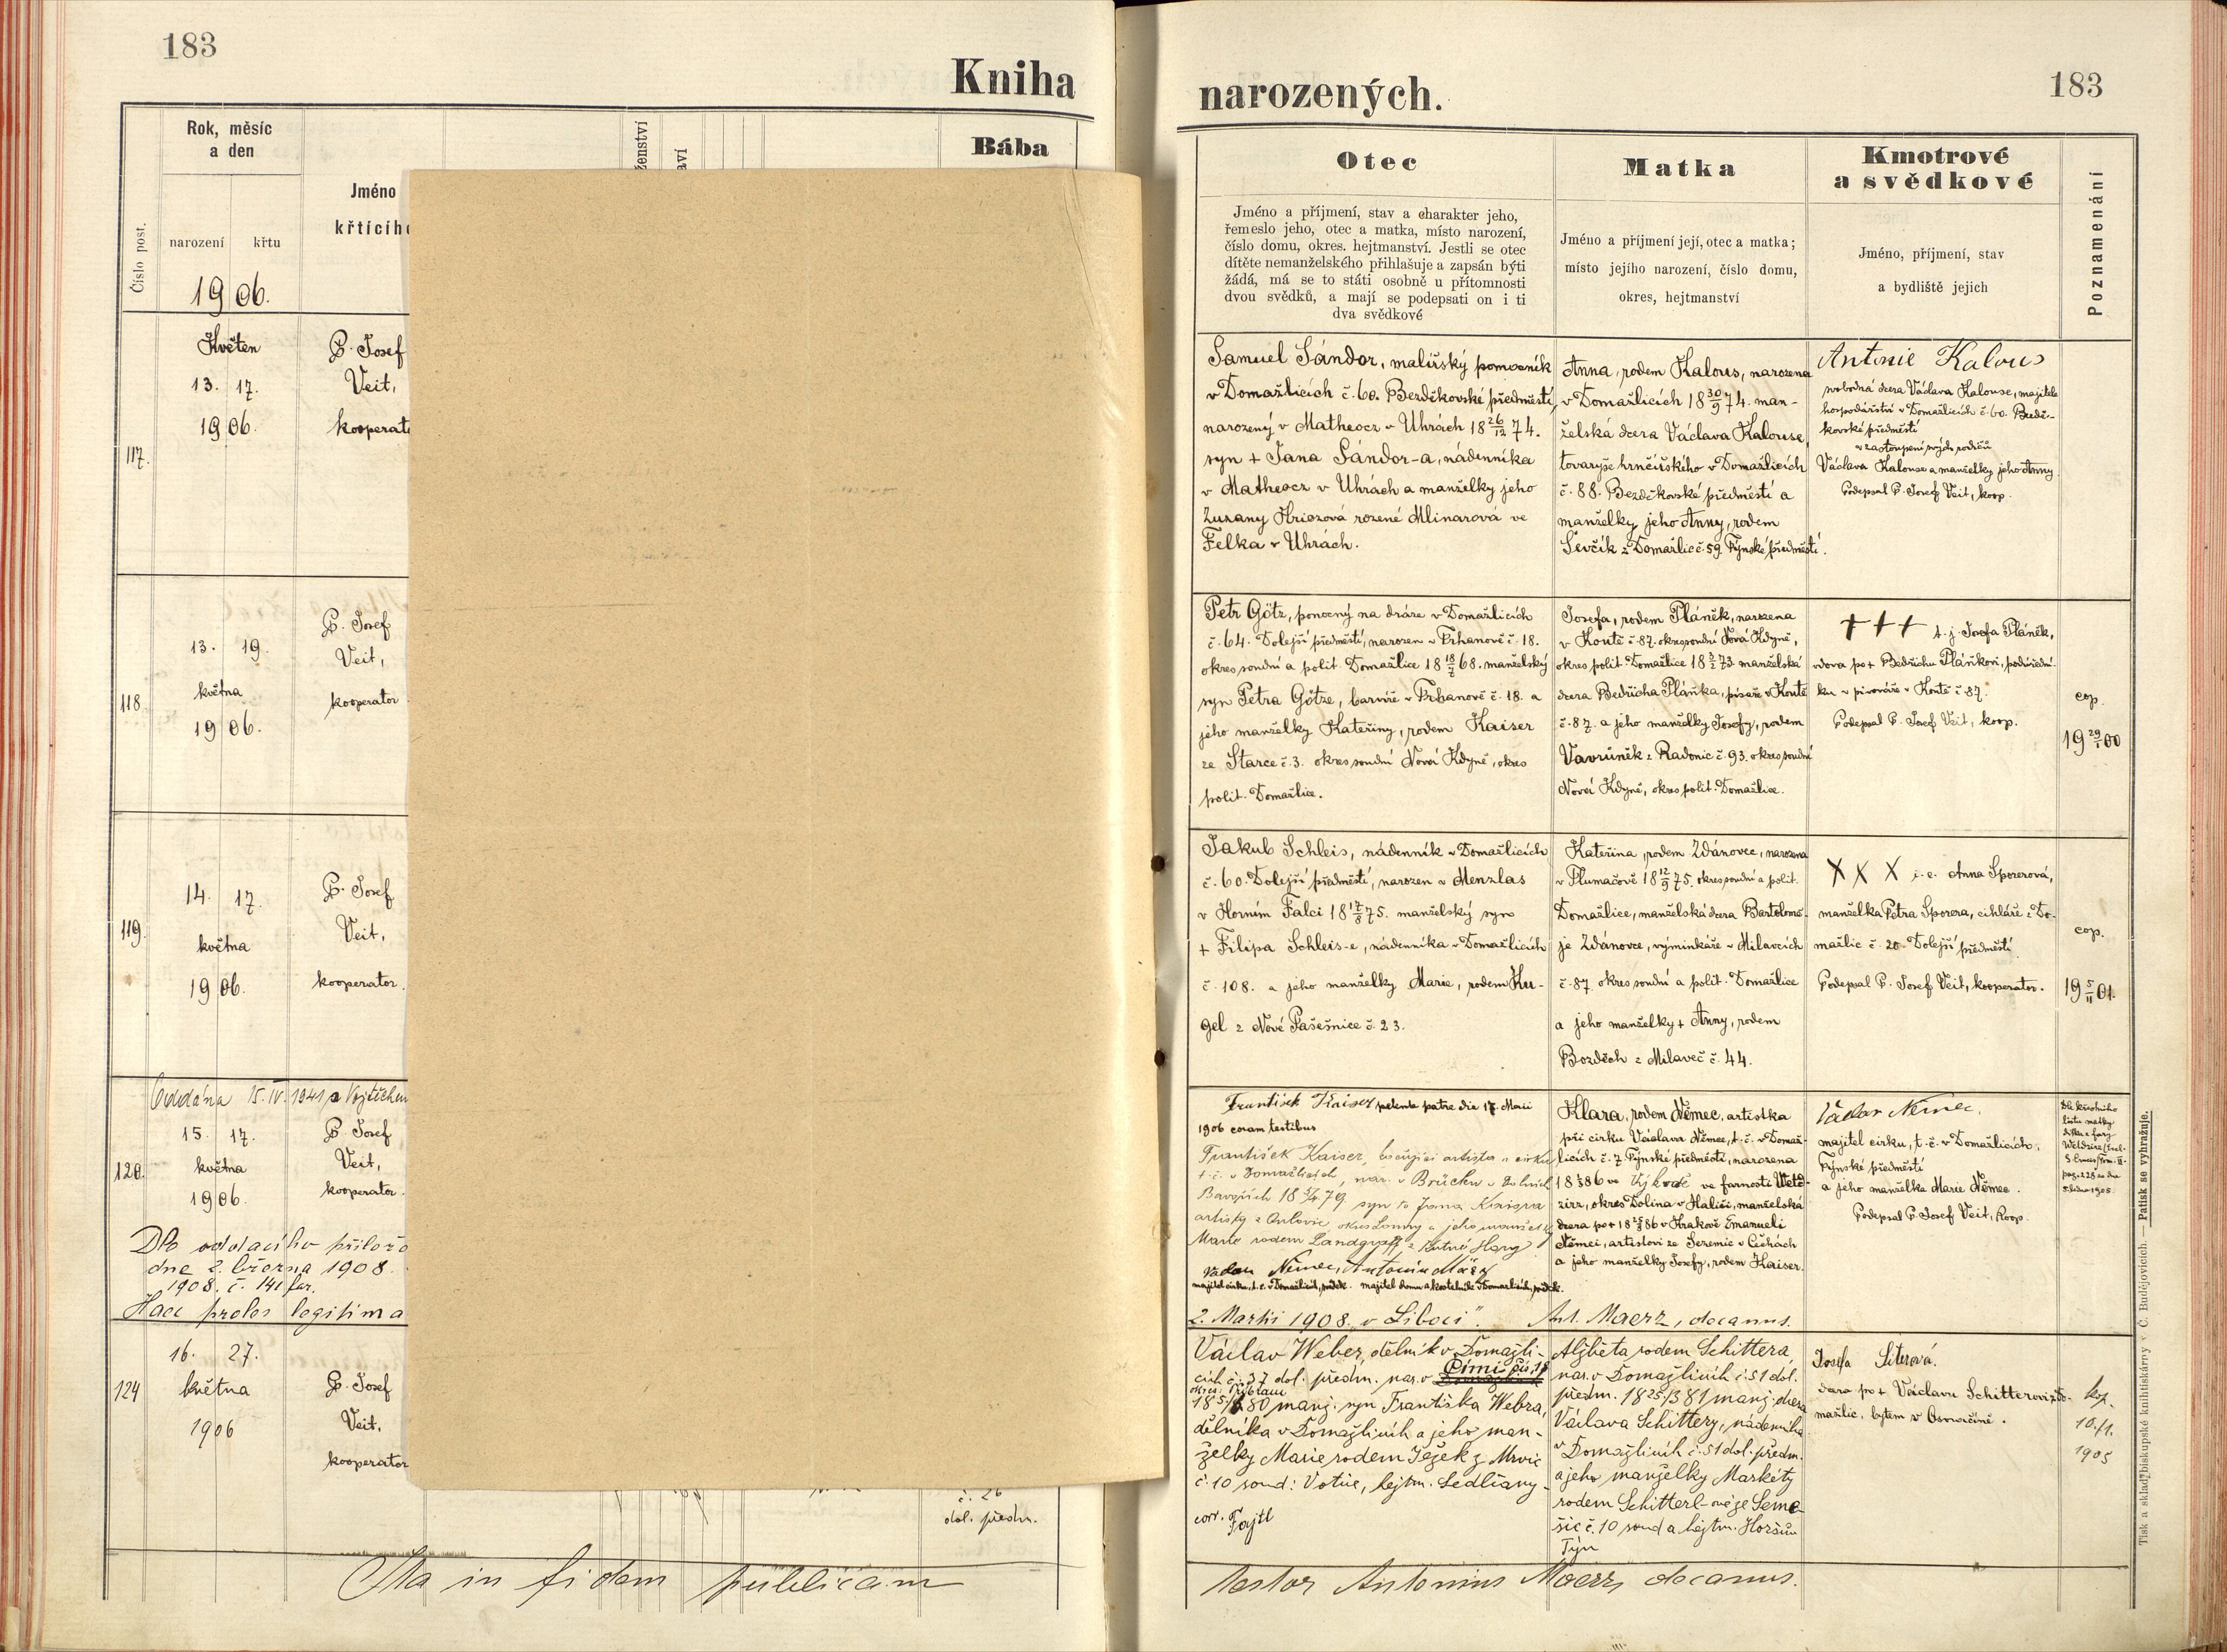 183
Kniha
Rok, měsíc
a den
Bába
Jméno
křtícího
Číslo post.
narození
křtu
1906.
Květen
13. 17.
1906.
117.
P. Josef
Veit,
kooperato
13. 19.
května
1906.
118
P. Josef
Veit,
kooperator
14. 17.
května
1906.
119.
P. Josef
Veit,
kooperator.
Oddána 15.IV.1941 s Vojtěchem
15. 17.
května
1906.
120.
P. Josef
Veit,
kooperator.
Dle oddacího přílož
dne 2. března 1908.
1908. č. 141 far.
Haec proles legitima
16. 27.
května
1906
121
P. Josef
Veit,
kooperator
č. 26
dol. předm.
Ita in fidem publicam
narozených.
183
Otec
Jméno a příjmení, stav a charakter jeho,
řemeslo jeho, otec a matka, místo narození,
číslo domu, okres. hejtmanství. Jestli se otec
dítěte nemanželského přihlašuje a zapsán býti
žádá, má se to státi osobně u přítomnosti
dvou svědků, a mají se podepsati on i ti
dva svědkové
Matka
Jméno a příjmení její, otec a matka;
místo jejího narození, číslo domu,
okres, hejtmanství
Kmotrové
a svědkové
Jméno, příjmení, stav
a bydliště jejich
Poznamenání
Samuel Sándor, malířský pomocník
v Domažlicích č. 60. Bezděkovské předměstí,
narozený v Matheocz v Uhrách 18 26/12 74.
syn + Jana Sándor-a, nádenníka
v Matheocz v Uhrách a manželky jeho
Zuzany Hriczová rozené Mlinarová ve
Felka v Uhrách.
Anna, rodem Kalous, narozena
v Domažlicích 18 30/9 74. man-
želská dcera Václava Kalouse,
tovaryše hrnčířského v Domažlicích
č. 88. Bezděkovské předměstí a
manželky jeho Anny, rodem
Ševčík z Domažlic č. 59 Týnské předměstí.
Antonie Kalous
svobodná dcera Václava Kalouse, majitele
hospodářství v Domažlicích č. 60. Bezdě-
kovské předměstí
v zastoupení svých rodičů
Václava Kalouse a manželky jeho Anny.
Podepsal P. Josef Veit, koop.
Petr Götz, ponocný na dráze v Domažlicích
č. 64. Dolejší předměstí, narozen v Trhanově č. 18.
okres soudní a polit. Domažlice 18 18/7 68. manželský
syn Petra Götze, barvíře v Trhanově č. 18. a
jeho manželky Kateřiny, rodem Kaiser
ze Starce č. 3. okres soudní Nová Kdyně, okres
polit. Domažlice.
Josefa, rodem Pláněk, narozena
v Koutě č. 87. okres soudní Nová Kdyně,
okres polit. Domažlice 18 3/2 73. manželská
dcera Bedřicha Pláňka, písaře v Koutě
č. 87. a jeho manželky Josefy, rodem
Vavruněk z Radonic č. 93. okres soudní
Nová Kdyně, okres polit. Domažlice.
+++ t. j. Josefa Pláněk,
vdova po + Bedřichu Pláňkovi, podúřední-
ku v pivováře v Koutě č. 87.
Podepsal P. Josef Veit, koop.
cop.
19 29/1 00
Jakub Schleis, nádenník v Domažlicích
č. 60. Dolejší předměstí, narozen v Menzlas
v Horním Falci 18 17/8 75. manželský syn
+ Filipa Schleis-e, nádenníka v Domažlicích
č. 108. a jeho manželky Marie, rodem Ku-
gel z Nové Pašešnice č. 23.
Kateřina, rodem Zdánovec, narozena
v Tlumačově 18 12/9 75. okres soudní a polit.
Domažlice, manželská dcera Bartolomě-
je Zdánovce, výminkáře v Milavcích
č. 87. okres soudní a polit. Domažlice
a jeho manželky + Anny, rodem
Bozděch z Milaveč č. 44.
X X X i. e. Anna Sporerová,
manželka Petra Sporera, cihláře z Do-
mažlic č. 20 Dolejší předměstí.
Podepsal P. Josef Veit, kooperator.
cop.
19 5/11 01.
František Kaiser petente patre die 17. Maii
1906 coram testibus
František Kaiser, cirku
t. č. v Domažlicích, nar. v v Dolních
Bavořích 18 79. syn Jana Kaisera
artisty z okres Louny a jeho manželky
Marie rodem Landgraff z Kutné Hory
Václav Němec, Antonín März
majitel cirku, t. č. v Domažlicích, svědek. majitel domu a kostelník v Domažlicích, svědek.
2. Martii 1908. v Liboci". Ant. Maerz, decanus.
Klara, rodem Němec, artistka
při cirku Václava Němec, t. č. v Domaž-
licích č. 7 Týnské předměstí, narozena
86 ve ve farnosti Weld-
zirz, okres Dolina v Haliči, manželská
dcera po + 18 86 v Krakově Emanueli
Němci, artistovi ze Sezemic v Čechách
a jeho manželky Josefy, rodem Kaiser.
Václav Němec,
majitel cirku, t. č. v Domažlicích,
Týnské předměstí
a jeho manželka Marie Němec.
Podepsal P. Josef Veit, koop.
Dle křestního
listu matky
Václav Weber, dělník v Domažli-
cích č. 37 dol. předm. nar. v Pimi čís. 18
okres: Příbram
80 manž. syn Františka Webra,
dělníka v Domažlicích a jeho man-
želky Marie rodem Ježek z Mrvic
č. 10 soud: Votice, hejtm. Sedlčany.
corr. Fajtl
Alžběta rodem Schittera
nar. v Domažlicích č. 51 dol.
předm. 1825/3 81 manž. dcera
Václava Schittery, nádenníka
v Domažlicích č. 51 dol. předm.
a jeho manželky Markéty
rodem Schitterl-ové ze Seme-
šic č. 10 soud a hejtm. Horšův
Týn
Josefa Siterová.
dcera po + Václavu Schitterovi z Do-
mažlic, bytem v Osvračíně.
kop.
10./1.
1905
testor Antonius Maerz, decanus.
Tisk a sklad biskupské knihtiskárny v Č. Budějovicích. — Patisk se vyhražuje.